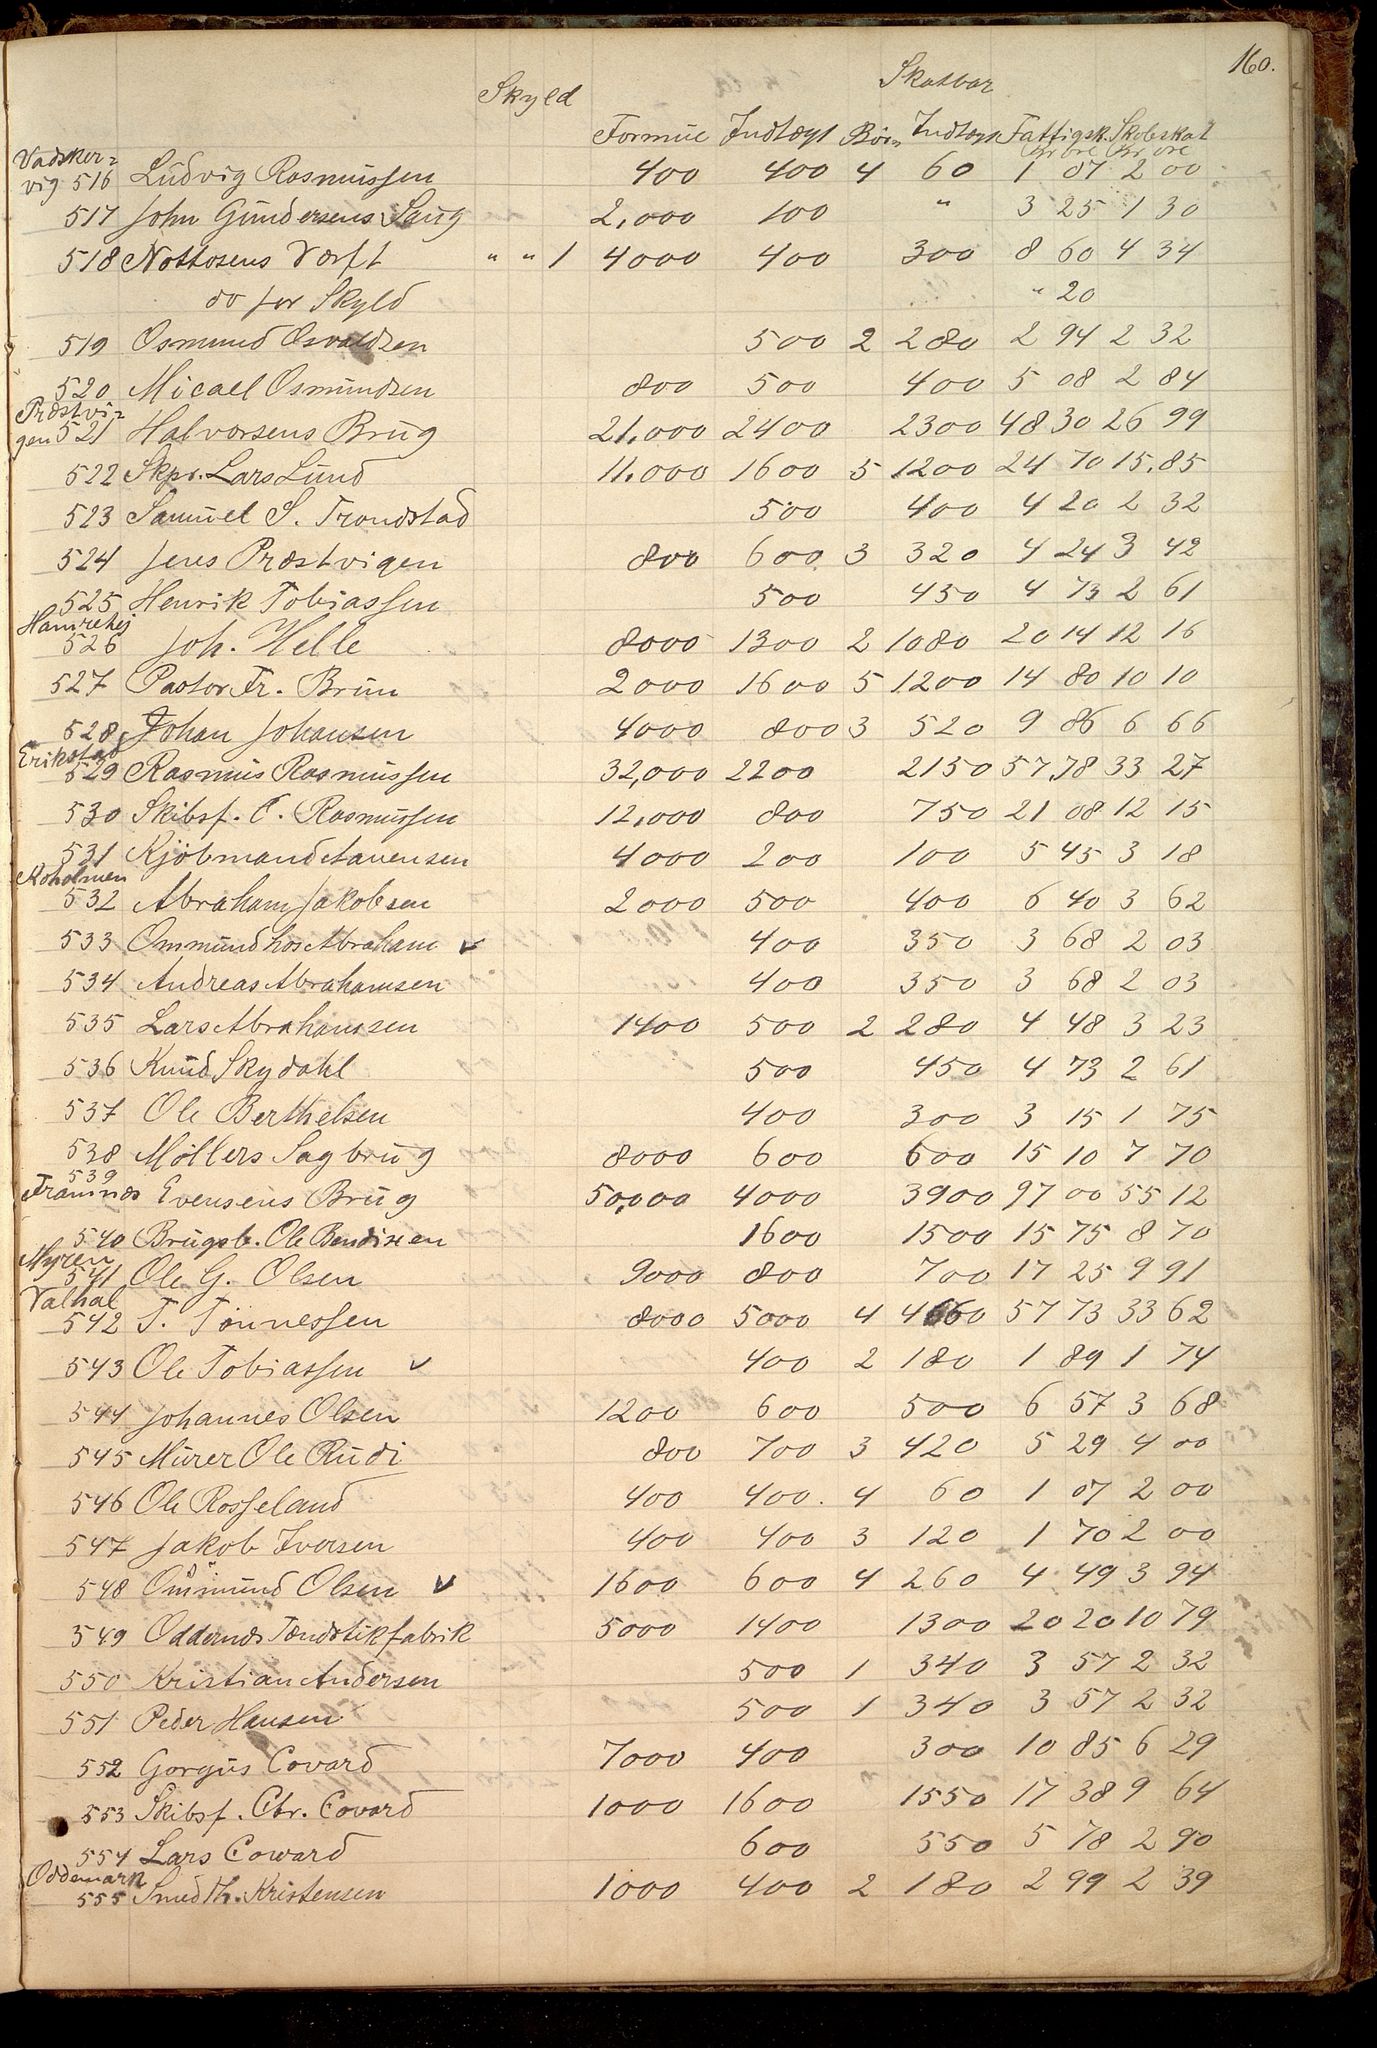 160.
Skyld Skatbar
Formue Indtægt Børn Indtægt Fattigsk. Skoleskat
Kr øre Kr øre
Vadsker-
vig 516 Ludvig Rasmussen 400 400 4 60 1 07 2 00
517 John Gundersens Saug 2,000 100 " 3 25 1 30
518 Nottosens Værft " " 1 4000 400 300 8 60 4 34
do for Skyld " 20
519 Osmund Osvaldsen 500 2 280 2 94 2 32
520 Micael Osmundsen 800 500 400 5 08 2 84
Præstvi-
gen 521 Halvorsens Brug 21,000 2400 2300 48 30 26 99
522 Skpr. Lars Lund 11,000 1600 5 1200 24 70 15,85
523 Samuel S. Trondstad 500 400 4 20 2 32
524 Jens Præstvigen 800 600 3 320 4 24 3 42
525 Henrik Tobiassen 500 450 4 73 2 61
Hamrehei
526 Joh. Helle 8000 1300 2 1080 20 14 12 16
527 Pastor Fr. Brun 2000 1600 5 1200 14 80 10 10
528 Johan Johansen 4000 800 3 520 9 86 6 66
Erikstad
529 Rasmus Rasmussen 32,000 2200 2150 57,78 33 27
530 Skibsf. C. Rasmussen 12,000 800 750 21 08 12 15
531 Kjöbmand Aanensen 4000 200 100 5 45 3 18
Koholmen
532 Abraham Jakobsen 2000 500 400 6 40 3 62
533 Ommund hos Abraham ✓ 400 350 3 68 2 03
534 Andreas Abrahamsen 400 350 3 68 2 03
535 Lars Abrahamsen 1400 500 2 280 4 48 3 23
536 Knud Skydahl 500 450 4 73 2 61
537 Ole Berthelsen 400 300 3 15 1 75
538 Möllers Sagbrug 8000 600 600 15 10 7 70
539
Framnæs Evensens Brug 50,000 4000 3900 97 00 55 12
540 Brugsb. Ole Bendixen 1600 1500 15 75 8 70
Myren
541 Ole G. Olsen 9000 800 700 17 25 9 91
Valhal
542 T. Tönnessen 8000 5000 4 4660 57 73 33 62
543 Ole Tobiassen ✓ 400 2 180 1 89 1 74
544 Johannes Olsen 1200 600 500 6 57 3 68
545 Murer Ole Rudi 800 700 3 420 5 29 4 00
546 Ole Rosseland 400 400. 4 60 1 07 2 00
547 Jakob Iversen 400 400 3 120 1 70 2 00
548 Ommund Olsen ✓ 1600 600 4 260 4 49 3 94
549 Oddernæs Tændstikfabrik 5000 1400 1300 20 20 10 79
550 Kristian Andersen 500 1 340 3 57 2 32
551 Peder Hansen 500 1 340 3 57 2 32
552 Gorgus Covard 7000 400 300 10 85 6 29
553 Skibsf. Chr. Covard 1000 1600 1550 17 38 9 64
554 Lars Coward 600 550 5 78 2 90
Oddemark
555 Smed Th. Kristensen 1000 400 2 180 2 99 2 39